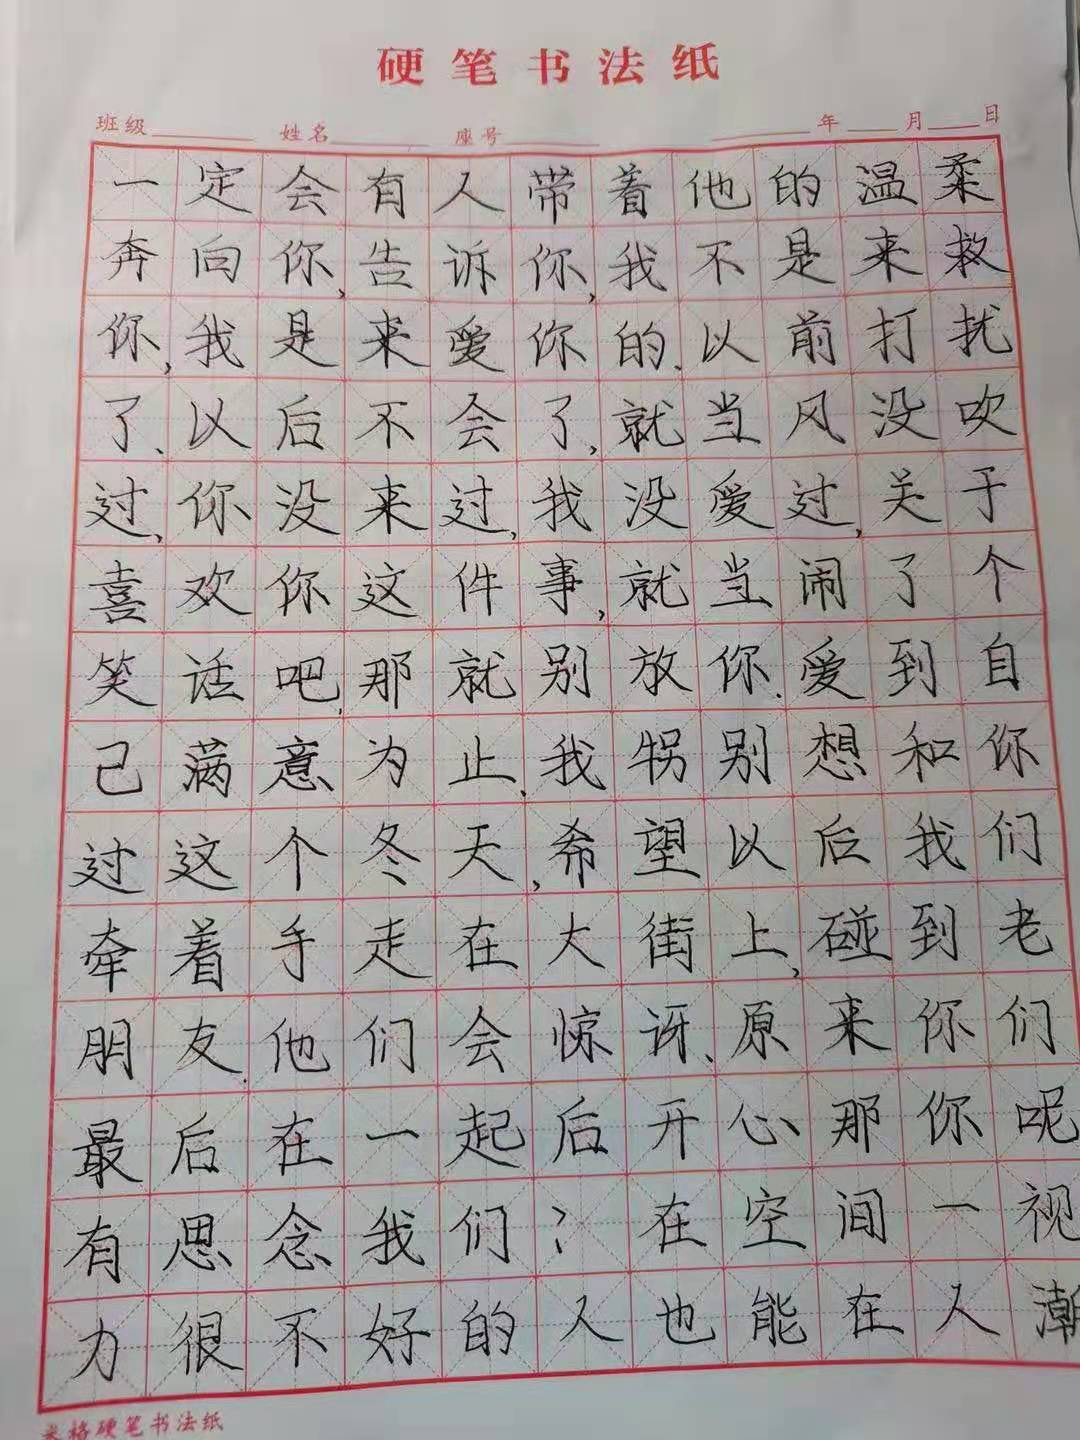 硬笔书法纸
班级 姓名 座号 年 月 日
一定会有人带着他的温柔
奔向你,告诉你,我不是来救
你,我是来爱你的.以前打扰
了、以后不会了,就当风没吹
过,你没来过,我没爱过,关于
喜欢你这件事,就当闹了个
笑话吧,那就别放你.爱到自
己满意为止.我特别想和你
过这个冬天,希望以后我们
牵着手走在大街上,碰到老
朋友.他们会惊讶、原来你们
最后在一起后开心那你呢
有思念我们?在空间一视
力很不好的人也能在人潮
米格硬笔书法纸